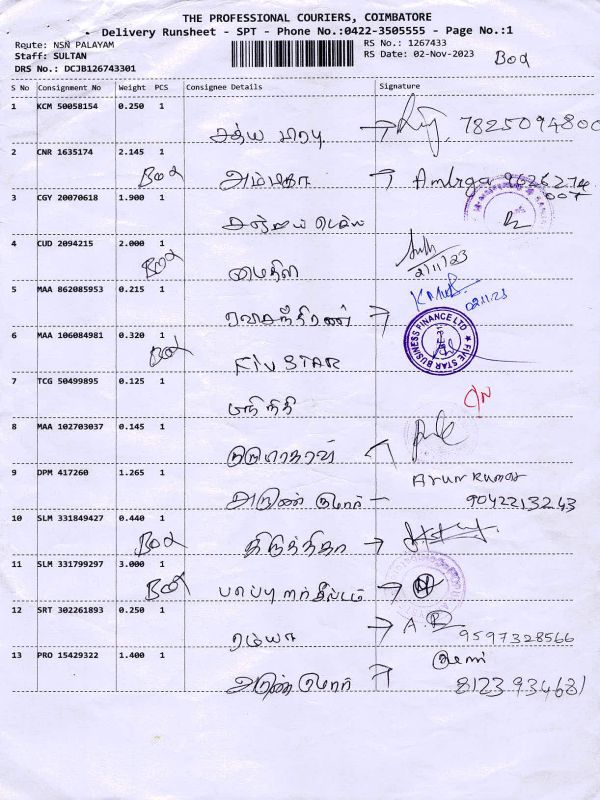 THE PROFESSIONAL COURIERS, COIMBATORE
Delivery Runsheet - SPT - Phone No.:0422-3505555 - Page No.:1
Route: NSN PALAYAM RS No.: 1267433
Staff: SULTAN RS Date: 02-Nov-2023
DRS No.: DCJB126743301
S No Consignment No Weight PCS Consignee Details Signature
1 KCM 50058154 0.250 1
சத்ய பிரபு 7825094800
2 CNR 1635174 2.145 1
Box அம்பிகா Ambiga 9626274
007
3 CGY 20070618 1.900 1
4 CUD 2094215 2.000 1
Box மைதிலி 2/11/23
5 MAA 862085953 0.215 1
02.11.23
ரவிசந்திரன்
6 MAA 106084981 0.320 1
FIVE STAR BUSINESS FINANCE LTD
Box FIV STAR
7 TCG 50499895 0.125 1
C/N
8 MAA 102703037 0.145 1
9 DPM 417260 1.265 1
Arun Kumar
அருண் குமார் 9042213243
10 SLM 331849427 0.440 1
Box
11 SLM 331799297 3.000 1
Box
12 SRT 302261893 0.250 1
ரம்யா 9597328566
13 PRO 15429322 1.400 1
அருண் குமார் 8123934681